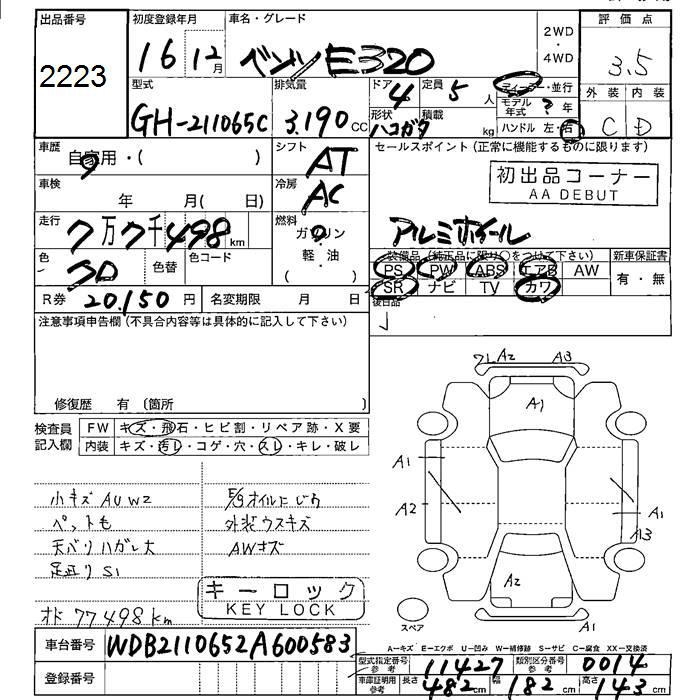 出品番号 初度登録年月 車名・グレード 2WD・4WD 評価点
2223 16 12月 ベンツ E320 3.5
型式 排気量 ドア 4 定員 5人 ディーラー・並行 外装 内装
GH-211065C 3.190 cc 形状 ハコガタ 積載 kg モデル年式 ? 年 C D
ハンドル 左・右
車歴 自家用・( ) シフト AT セールスポイント(正常に機能するものに限ります)
車検 年 月( 日) 冷房 AC 初出品コーナー
AA DEBUT
走行 7万7千498km 燃料 ガソリン 軽・油 ( ) アルミホイール
色 クロ 色替 色コード 装備品(純正品に限り○をつけて下さい) 新車保証書
PS PW ABS エアB AW 有・無
SR ナビ TV カワ
R券 20.150円 名変期限 月 日 後日品
注意事項申告欄(不具合内容等は具体的に記入して下さい)
修復歴 有 (箇所
検査員記入欄 FW キズ・飛石・ヒビ割・リペア跡・X要
内装 キズ・汚レ・コゲ・穴・スレ・キレ・破レ
小キズ AUW2 E/gオイルにじり
ペットも 外装ウスキズ
天バリハガレ大 AWキズ
足廻りS1
キーロック
KEY LOCK
オド 77498km
7L A2 A3
A1
A1
A2 A1
A3
A2
スペア A1
A-キズ E-エクボ U-凹み W-補修跡 S-サビ C-腐食 XX-交換済
車台番号 WDB2110652A600583
型式指定番号 参考 11427 類別区分番号 参考 0014
登録番号
車庫証明用 参考 長さ 482cm 幅 182cm 高さ 143cm